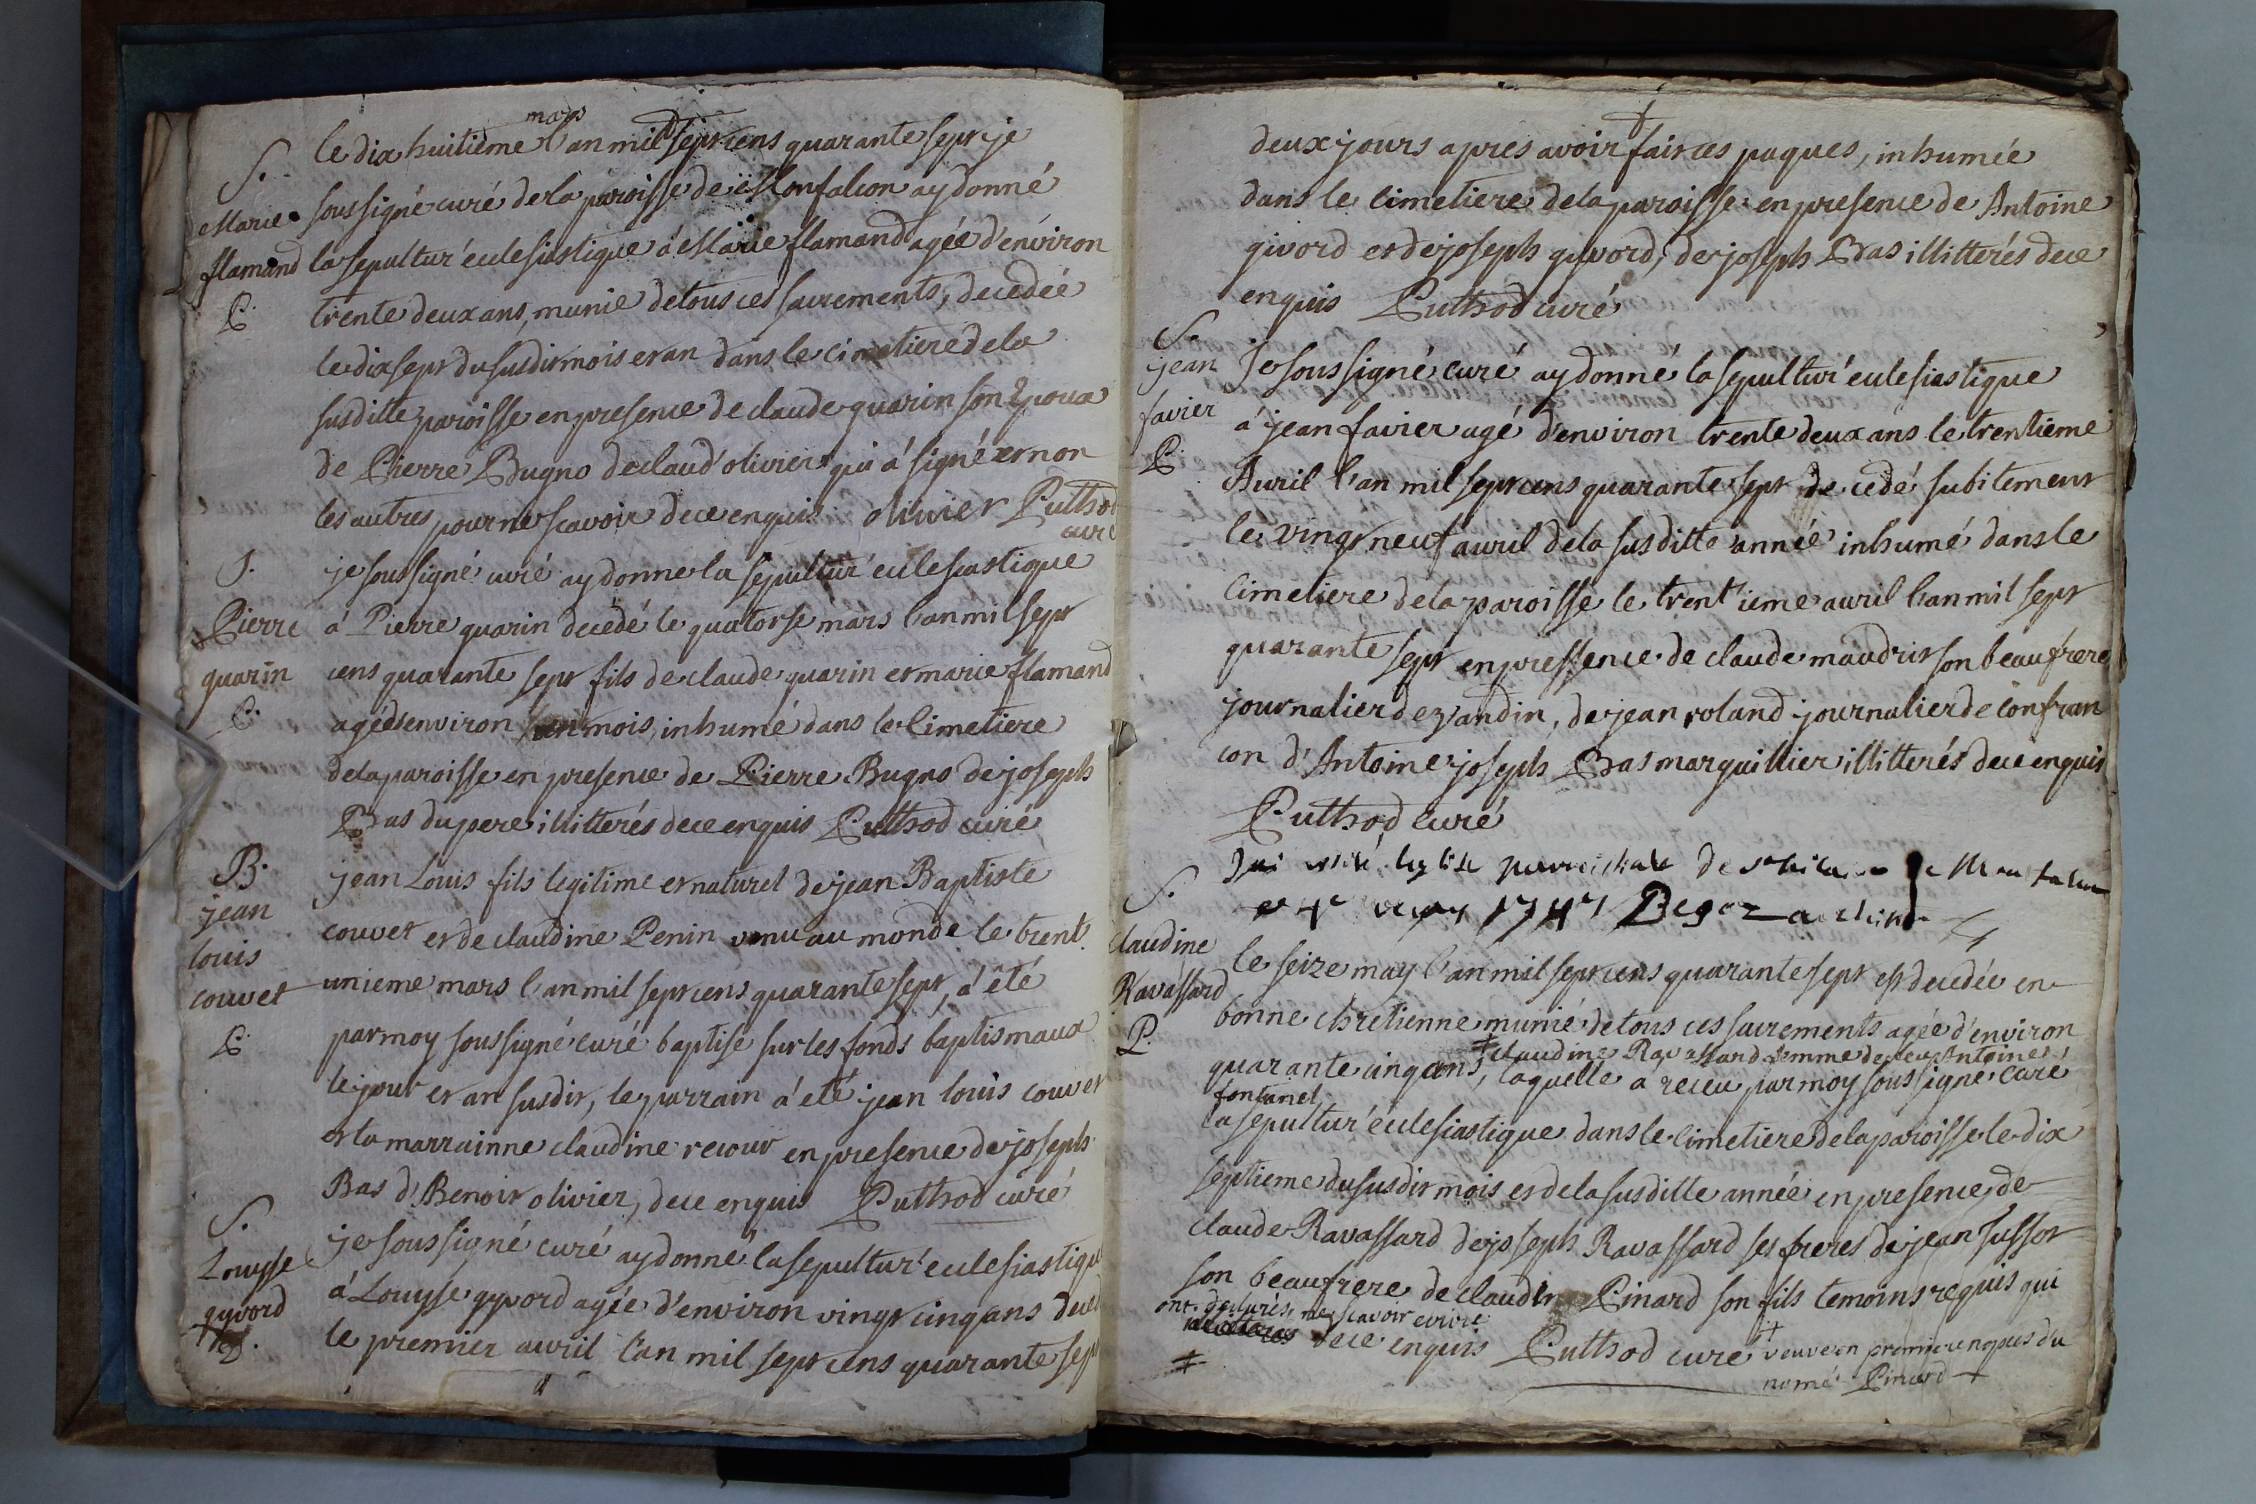 mars
le dix huitieme l'an mil sept cens quarante sept je
S.
Marie
flamand
P.
soussigné curé de la paroisse de Monfalcon ay donné
la sepultur' eclesiastique á Marie flamand agée d'environ
trente deux ans, munie de tous ces sacrements, decedée
le dix sept du susdit mois et an dans le cimetiere de la
susditte paroisse en presence de claude quarin son Epoux
de Pierre Bugno de claud' olivier qui á signé et non
les autres pour ne scavoir de ce enquis olivier Puthod
curé
S.
Pierre
quarin
P.
je soussigné curé ay donné la sepultur' eclesiastique
á Pierre quarin decedé le quatorse mars l'an mil sept
cens quarante sept fils de claude quarin et marie flamand
agé d'environ un mois, inhumé dans le Cimetiere
de la paroisse en presence de Pierre Bugno de joseph
Bas du pere illitterés de ce enquis Puthod curé
B.
jean
louis
couvet
P.
jean Louis fils legitime et naturel de jean Baptiste
couvet et de claudine Penin venu au monde le trent'
unieme mars l'an mil sept cens quarante sept, á été
par moy soussigné curé baptisé sur les fonds baptismaux
le jour et an susdit, le parrain á eté jean louis couvet
et la marrainne claudine recour en presence de joseph
Bas d'Benoit olivier, de ce enquis Puthod curé
S.
Louyse
gyvord
P.
je soussigné curé ay donné la sepultur' eclesiastique
á Louyse gyvord agée d'environ vingt cinq ans
le premier avril l'an mil sept cens quarante sept
deux jours apres avoir fait ces paques, inhumée
dans le cimetiere de la paroisse en presence de Antoine
givord et de joseph givord, de joseph Bas illitterés de ce
enquis Puthod curé
S.
jean
favier
P.
Je soussigné curé ay donné la sepultur' eclesiastique
á jean favier agé d'environ trente deux ans le trentieme
Avril l'an mil sept cens quarante sept decedé subitement
le vingt neuf avril de la susditte année inhumé dans le
Cimetiere de la paroisse le trent'ieme avril l'an mil sept
quarante sept en pressence de claude maudrit son beaufrere
journalier d'ezandin, de jean roland journalier de Confran
con d'Antoine joseph Bas marguillier illitterés de ce enquis
Puthod Curé
Jai visité leglise de
1747
S.
claudine
Ravassard
P.
le seize may l'an mil sept cens quarante sept est decedée en
bonne chretienne munie de tous ces sacrements agée d'environ
+ claudine Ravassard femme de feu Antoine
quarante cinq ans, laquelle a receu par moy soussigné Curé
fontanel
la sepultur' eclesiastique dans le Cimetiere de la paroisse le dix
septieme du susdit mois et de la susditte année en presence, de
claude Ravassard de joseph Ravassard ses freres de jean sussot
son beaufrere de Pinard son fils temoins requis qui
ont declarés ne scavoir ecrire
de ce enquis Puthod curé + veuve en premiere nopces du
nomé Pinard +